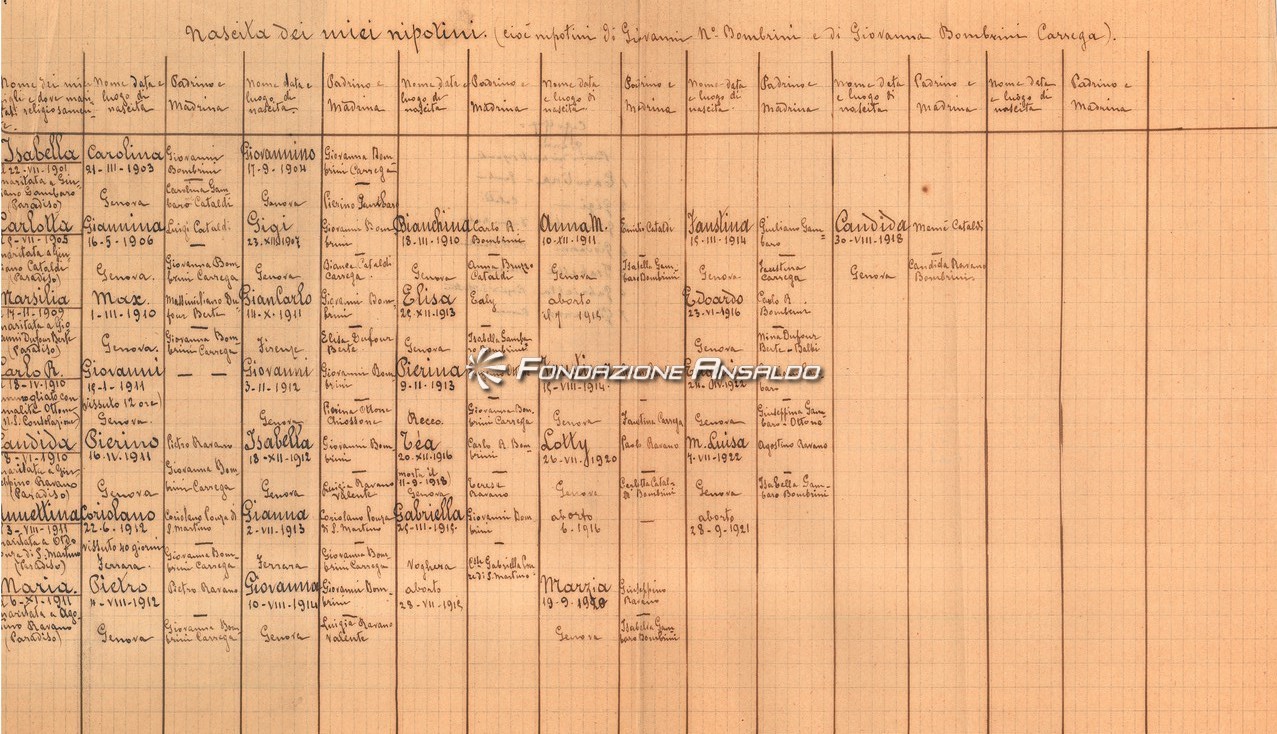 Nascita dei miei nipotini. (cioè nipotini di Giovanni N° Bombrini e di Giovanna Bombrini Carrega).
Nome dei mi
figli e dove mari
tati religiosamen
te.
Nome data e
luogo di
nascita
Padrino e
Madrina
Nome data e
luogo di
nascita
Padrino e
Madrina
Nome data e
luogo di
nascita
Padrino e
Madrina
Nome data
e luogo di
nascita
Padrino e
Madrina
Nome data
e luogo di
nascita.
Padrino e
Madrina
Nome data
e luogo di
nascita
Padrino e
Madrina
Nome data
e luogo di
nascita
Padrino e
Madrina
Isabella
22-VII-1901
maritata a Giu
liano Gambaro
(Paradiso)
Carolina
21-III-1903
Genova
Giovanni
Bombrini
Carolina Gam
baro Cataldi
Giovannino
17-9-1904
Genova
Giovanna Bom
brini Carrega
Pierino Gambaro
Carlotta
-VII-1905
maritata a Giu
liano Cataldi
(Paradiso)
Giannina
16-5-1906
Genova.
Luigi Cataldi
Giovanna Bom
brini Carrega
Gigi
23-XII-1907
Genova
Giovanni Bom
brini
Bianca Cataldi
Carrega
Bianchina
18-III-1910
Genova
Carlo R.
Bombrini
Anna Bruzzo
Cataldi
Anna M.
10-XII-1911
Genova
Emilio Cataldi
Isabella Gam
baro Bombrini
Faustina
15-III-1914
Genova
Giuliano Gam=
baro
Faustina
Carrega
Candida
30-VIII-1918
Genova
Mamè Cataldi
Candida Ravano
Bombrini.
Marsilia
17-11-1909
maritata a Gio
vanni Dufour Berte
(Paradiso)
Max.
1-III-1910
Genova.
Massimiliano Du
four Berte
Giovanna Bom
brini Carrega
GianCarlo
14-X-1911
Firenze
Giovanni Bom
brini
Elisa Dufour
Berte
Elisa
22-XII-1913
Genova
Galy
Isabella Gamba
ro Bombrini
aborto
Edoardo
23-VI-1916
Genova
Carlo R.
Bombrini
Nina Dufour
Berte-Balbi
Carlo R.
18-IV-1910
ammogliato con
Amalita Ottone
Giovanni
15-1-1911
(vissuto 12 ore)
Genova.
— —
Giovanni
3-11-1912
Genova
Giovanni Bom
brini
Pierina Ottone
Chiossone
Pierina
9-11-1913
Recco.
Giovanna Bom
brini Carrega
15-VIII-1914.
Genova
Faustina Carrega
24-IV-1922
Genova
Giuseppina Gam
baro-Ottone
Candida
8-VI-1910
maritata a Giu
seppino Ravano
(Paradiso)
Pierino
16-IV-1911
Genova
Pietro Ravano
Giovanna Bom
brini Carrega
Isabella
18-XII-1912
Genova
Giovanni Bom
brini
Luigia Ravano
Valente
Tea
20-XII-1916
morta il
11-9-1918)
Genova
Carlo R Bom
brini
Terese
Ravano
Lotty
26-VII-1920
Genova
Paolo Ravano
Carlotta Catal
di Bombrini
M. Luisa
7-VII-1922
Genova
Agostino Ravano
Isabella Gam
baro Bombrini
Annettina
3-VIII-1911
maritata a Otto
Ponza di S. Martino
(Paradiso)
Coriolano
22-6-1912
vissuto 40 giorni
Ferrara.
Coriolano Ponza di
S. Martino
Giovanna Bom
brini Carrega
Gianna
2-VII-1913
Ferrara
Coriolano Ponza
di S. Martino
Giovanna Bom
brini Carrega
Gabriella
25-III-1915-
Voghera
Giovanni Bom
brini
Csa Gabriella Pon
za di S. Martino.
aborto
6-1916
—
aborto
28-9-1921
Maria.
6-XI-1911
maritata a Ago
stino Ravano
(Paradiso)
Pietro
4-VIII-1912
Genova
Pietro Ravano
Giovanna Bom
brini Carrega
Giovanna
10-VIII-1914
Genova
Giovanni Bom
brini
Luigia Ravano
Valente
aborto
28-VII-1915
Marzia
19-9-1920
Genova
Giuseppino
Ravano
Isabella Gam
baro Bombrini
FONDAZIONE ANSALDO